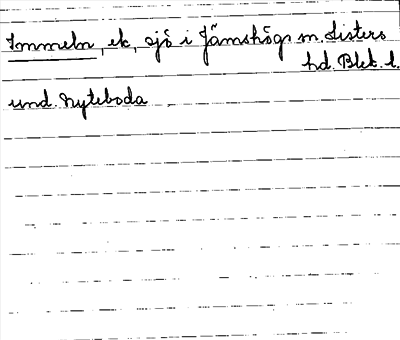 Immeln, ek, sjö i Jämshögs sn. Listers
hd. Blek. l.
und. Nyteboda